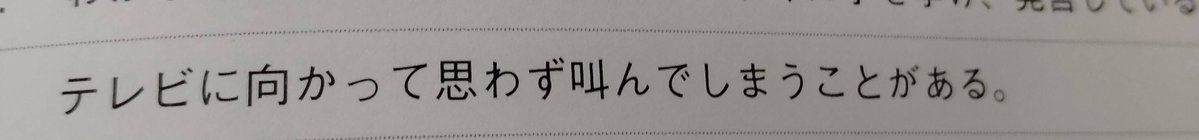 テレビに向かって思わず叫んでしまうことがある。